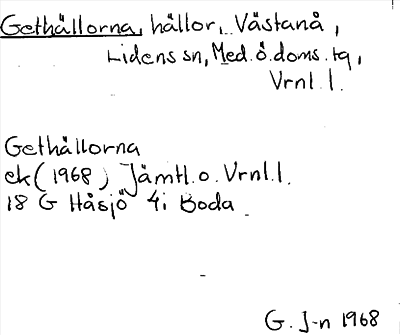 Gethällorna, hällor, Västanå,
Lidens sn, Med. ö. doms. tg,
Vrnl. l.
Gethällorna
ek (1968) Jämtl. o. Vrnl. l.
18 G Håsjö 4i Boda
G. J-n 1968